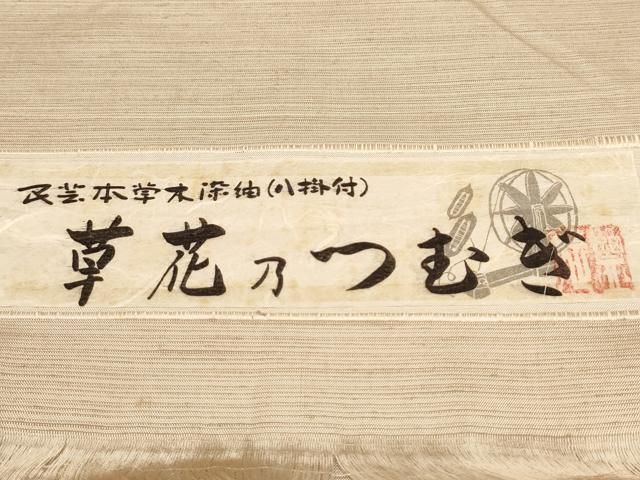 民芸本草木染紬(八掛付)
草花乃つむぎ